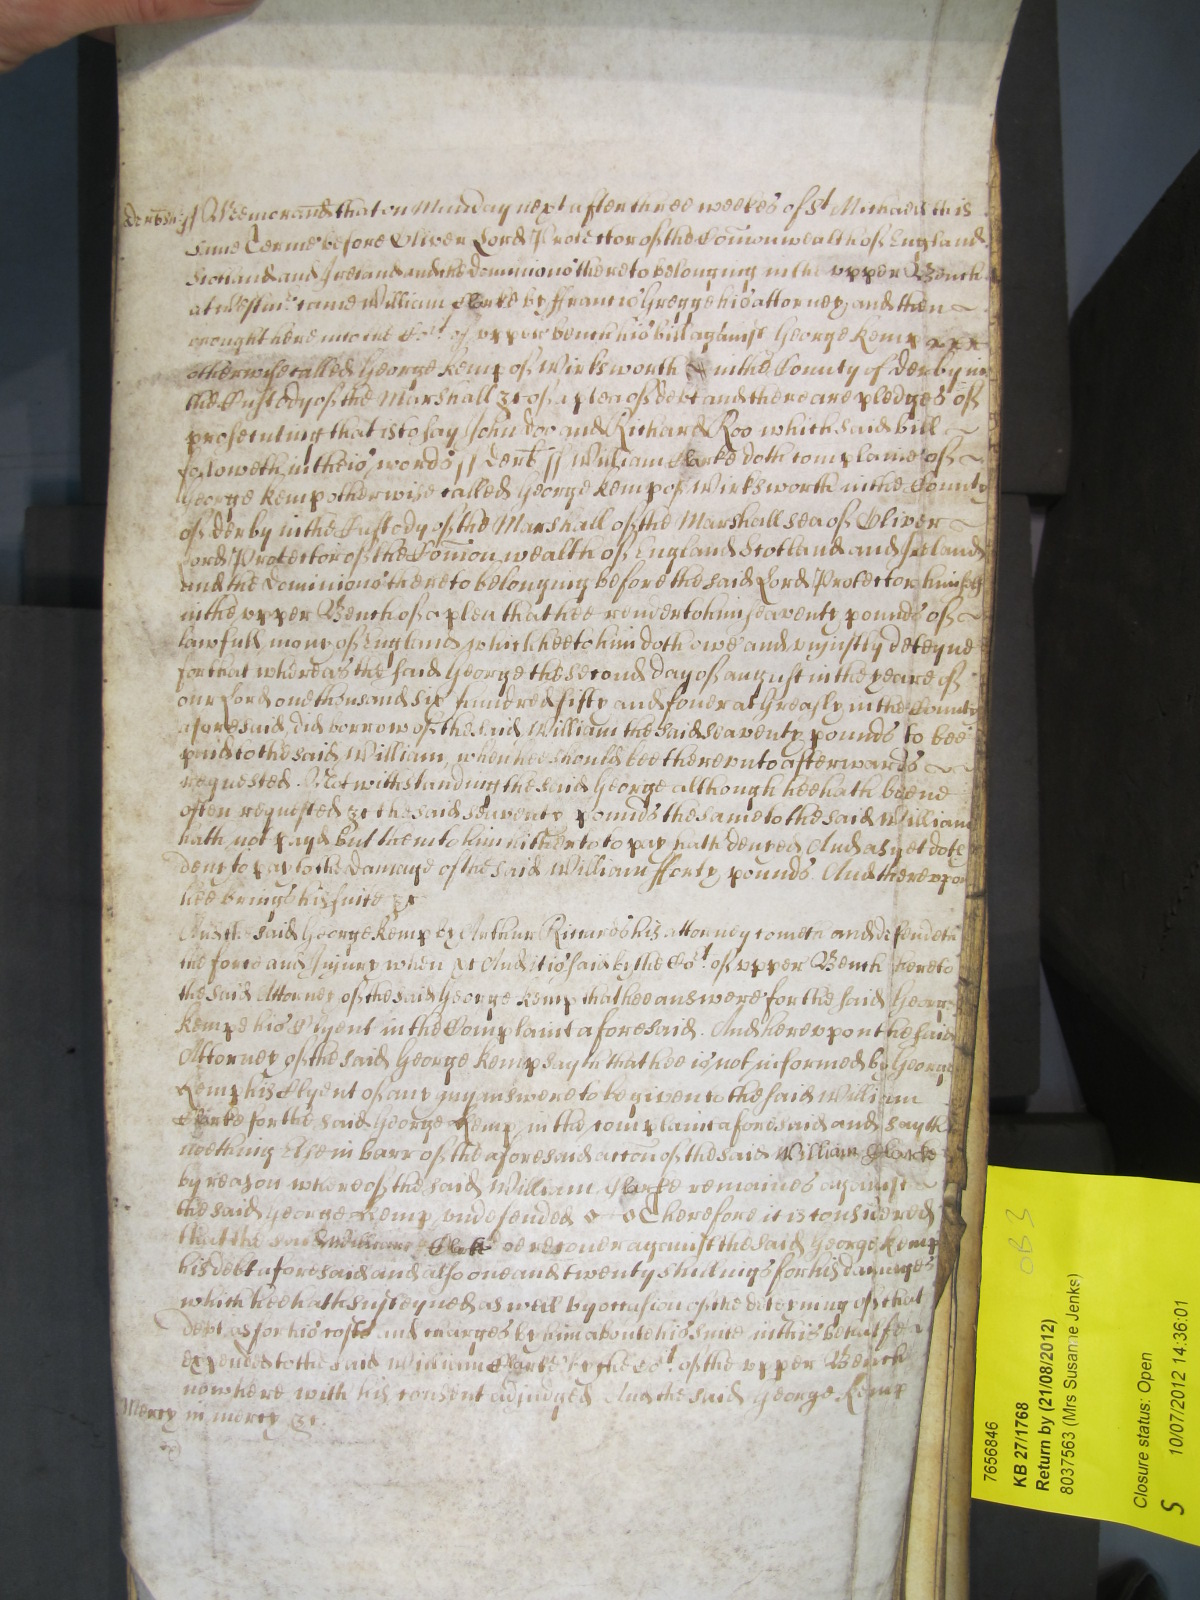 Derbsh: ss Memorand that on Munday next after three weekes of St Michaell this
same Terme before Oliver Lord Protector of the Comonwealth of England
Scotland and Ireland and the dominions thereto belonging in the upper Bench
at Westmr. came William Clarke by Francis Gregge his attorney and then
brought here into the Cot. of upper bench his bill against George Kemp
otherwise called George Kemp of Wirksworth in the County of Derby in
the Custody of the Marshall &c of a plea of debt and there are pledges of
prosecuting that is to say John Doo and Richard Roo which said bill
followeth in theis words ss Derb ss William Clarke doth complaine of
George Kemp otherwise called George Kemp of Wirksworth in the County
of Derby in the Custody of the Marshall of the Marshallsea of Oliver
Lord Protector of the Comon wealth of England Scotland and Ireland
and the dominions thereto belonging before the said Lord Protector himself
in the upper Bench of a plea that hee render to him seaventy pounds of
lawfull mony of England which hee to him doth owe and unjustly deteyne
for that whereas the said George the second day of august in the yeare of
our Lord one thousand six hundred fifty and fower at Greasly in the County
aforesaid did borrow of the said William the said seaventy pounds to bee
paid to the said William when hee should bee thereunto afterwards
requested. Notwithstanding the said George allthough hee hath beene
often requested &c the said seaventy pounds the same to the said William
hath not payd But them to him hitherto to pay hath denyed And as yet doth
deny to pay to the damage of the said William fforty pounds. And thereupon
hee brings his suite &c
And the said George Kemp by Arthur Ricards his attorney cometh and defendeth
the force and Injury when &c And it is said by the Cot. of upper Bench here to
the said Attorney of the said George Kemp that hee answere for the said George
Kempe his Clyent in the Complaint aforesaid. And hereupon the said
Attorney of the said George Kemp sayth that hee is not informed by George
Kemp his Clyent of any answere to be given to the said William
Clarke for the said George Kemp in the complaint aforesaid and sayth
nothing Else in barr of the aforesaid accon of the said William Clarke
by reason whereof the said William Clarke remaines against
the said George Kemp undefended Therefore it is considered
that the said William Clarke doe recover against the said George Kemp
his debt aforesaid and also one and twenty shillings for his damages
which hee hath susteyned as well by occasion of the deteyning of that
debt as for his costs and charges by him aboute his suite in this behalfe
expended to the said William Clarke by the Cot. of the upper Bench
now here with his consent adjudged And the said George Kemp
Mercy in mercy &c.
7656846
KB 27/1768
Return by (21/08/2012)
8037563 (Mrs Susanne Jenks)
Closure status: Open
10/07/2012 14:36:01
S
OB 3